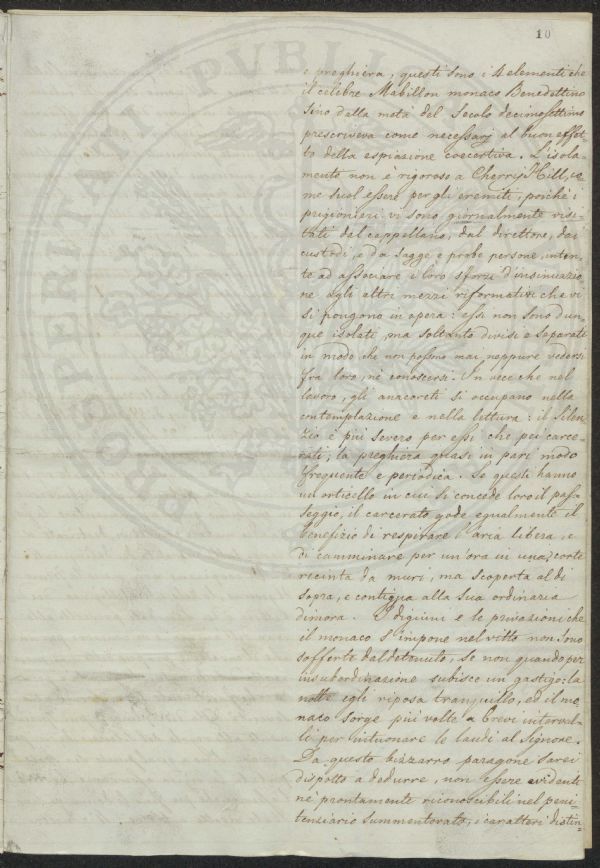 10
e preghiera, questi sono i 4 elementi che
il celebre Mabillon monaco Benedettino
sino dalla metà del Secolo decimosettimo
prescriveva come necessarj al buon effet=
to della espiazione coercitiva. L'isola=
mento non è rigoroso a Cherry Hill, co=
me suol essere per gli eremiti, poichè i
prigionieri vi sono giornalmente visi=
tati dal cappellano, dal direttore, dai
custodi, e da sagge e probe persone, inten=
te ad associare i loro sforzi d'insinuazio
ne agli altri mezzi riformativi che vi
si pongono in opera: essi non sono dun=
que isolati, ma soltanto divisi e separati
in modo che non possono mai neppure vedersi
fra loro, nè conoscersi. In vece che nel
lavoro, gli anacoreti si occupano nella
contemplazione e nella lettura: il silen=
zio è più severo per essi che pei carce=
rati; la preghiera quasi in pari modo
frequente e periodica. Se questi hanno
un orticello in cui si concede loro il pas=
seggio, il carcerato gode egualmente il
benefizio di respirare l'aria libera, e
di camminare per un'ora in una corte
recinta da muri, ma scoperta al di
sopra, e contigua alla sua ordinaria
dimora. I digiuni e le privazioni che
il monaco s'impone nel vitto non sono
sofferte dal detenuto, se non quando per
insubordinazione subisce un gastigo: la
notte egli riposa tranquillo, ed il mo=
naco sorge più volte a brevi interval=
li per intuonare le laudi al Signore.
Da questo bizzarro paragone sarei
disposto a dedurre, non essere evidenti
nè prontamente riconoscibili nel peni=
tenziario summentovato, i caratteri distin=
PRIORI PATI PVBLICO